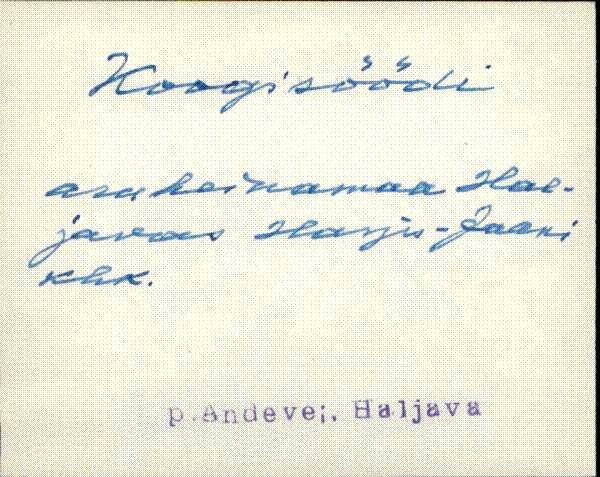 Koogisöödi
aruheinamaa Hal-
javas Harju-Jaani
khk.
p.Andevei, Haljava